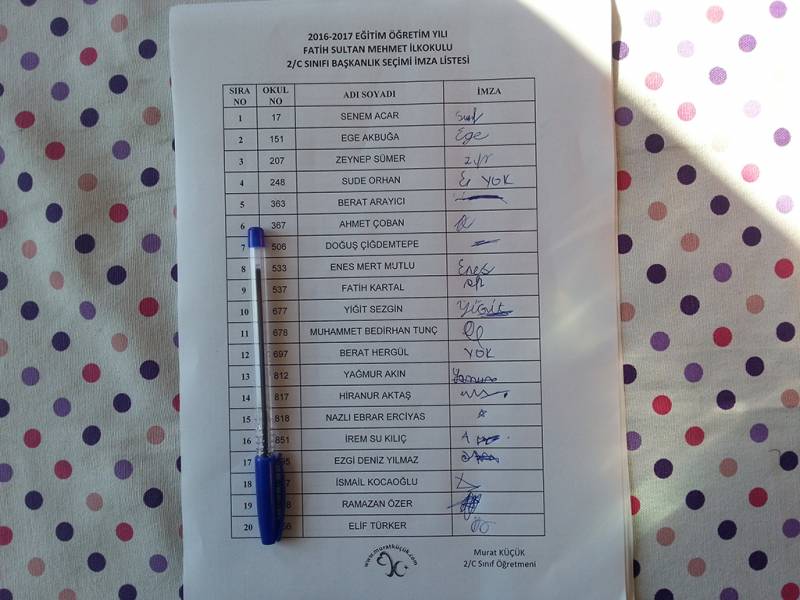 2016-2017 EĞİTİM ÖĞRETİM YILI
FATİH SULTAN MEHMET İLKOKULU
2/C SINIFI BAŞKANLIK SEÇİMİ İMZA LİSTESİ
SIRA NO OKUL NO ADI SOYADI İMZA
1 17 SENEM ACAR
2 151 EGE AKBUĞA Ege
3 207 ZEYNEP SÜMER
4 248 SUDE ORHAN YOK
5 363 BERAT ARAYICI
6 367 AHMET ÇOBAN
7 506 DOĞUŞ ÇİĞDEMTEPE
8 533 ENES MERT MUTLU Enes
9 537 FATİH KARTAL
10 677 YİĞİT SEZGİN YİĞİT
11 678 MUHAMMET BEDİRHAN TUNÇ
12 697 BERAT HERGÜL YOK
13 812 YAĞMUR AKIN
14 817 HİRANUR AKTAŞ
15 818 NAZLI EBRAR ERCİYAS
16 851 İREM SU KILIÇ
17 EZGİ DENİZ YILMAZ
18 İSMAİL KOCAOĞLU
19 RAMAZAN ÖZER
20 ELİF TÜRKER
www.muratküçük.com
Murat KÜÇÜK
2/C Sınıf Öğretmeni